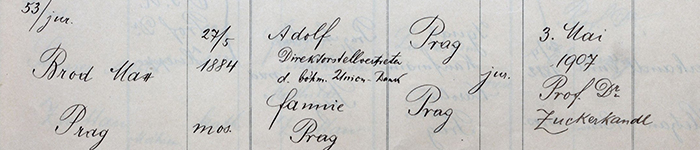 53/jur.
27/5 Adolf Prag 3. Mai
Brod Max 1884 Direktorstellvertreter jur. 1907
d. böhm. Union-Bank Prof. Dr.
Prag mos. fannie Prag Zuckerkandl
Prag